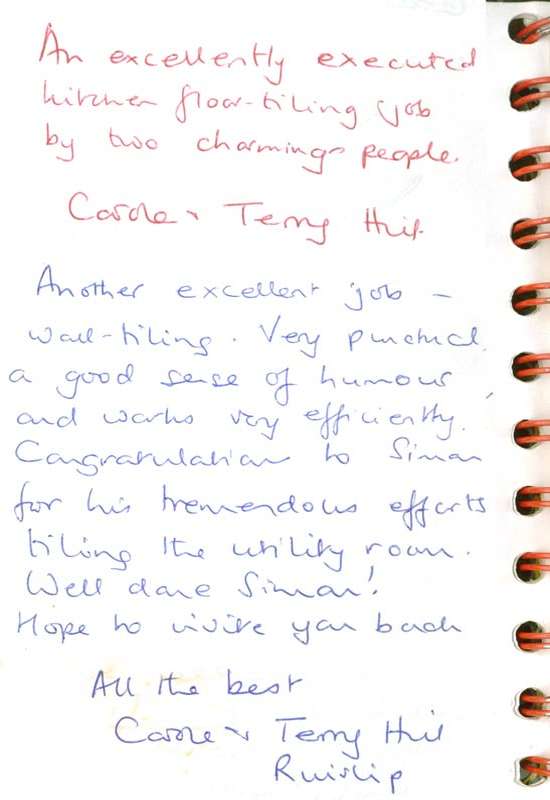 An excellently executed
kitchen floor-tiling job
by two charming people.
Carole & Terry Hill.
Another excellent job –
wall-tiling. Very punctual,
a good sense of humour,
and works very efficiently.
Congratulation to Simon
for his tremendous efforts
tiling the utility room.
Well done Simon!
Hope to invite you back
All the best
Carole & Terry Hill
Ruislip